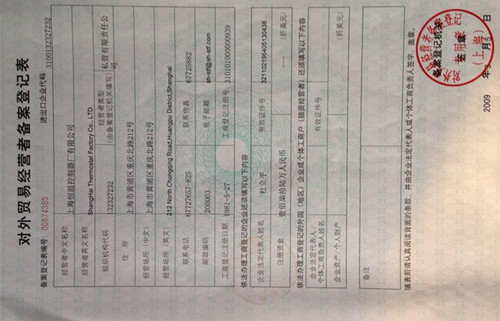 对外贸易经营者备案登记表
备案登记表编号: 00674365
进出口企业代码: 3100132327232
经营者中文名称 上海恒温控制器厂有限公司
经营者英文名称 Shanghai Thermostat Factory Co., LTD.
组织机构代码 132327232 经营者类型 (由备案登记机关填写) 私营有限责任公司
住 所 上海市黄浦区重庆北路212号
经营场所 (中文) 上海市黄浦区重庆北路212号
经营场所 (英文) 212 North Chongqing Road,Huangpu District,Shanghai
联系电话 67727657-825 联系传真 67725882
邮政编码 200003 电子邮箱 sh-stf@sh-stf.com
工商登记注册日期 1981-5-27 工商登记注册号 310101000006939
依法办理工商登记的企业还须填写以下内容
企业法定代表人姓名 杜立平 有效证件号 321102196405130436
注册资金 壹佰柒拾陆万人民币 (折美元)
依法办理工商登记的外国(地区)企业或个体工商户(独资经营者)还须填写以下内容
企业法定代表人/个体工商负责人姓名 有效证件号
企业资产/个人财产 (折美元)
备注
填表前请认真阅读背面的条款,并由企业法定代表人或个体工商负责人签字、盖章。
备案登记机关
签 章
(上海)
2009 年 月 日